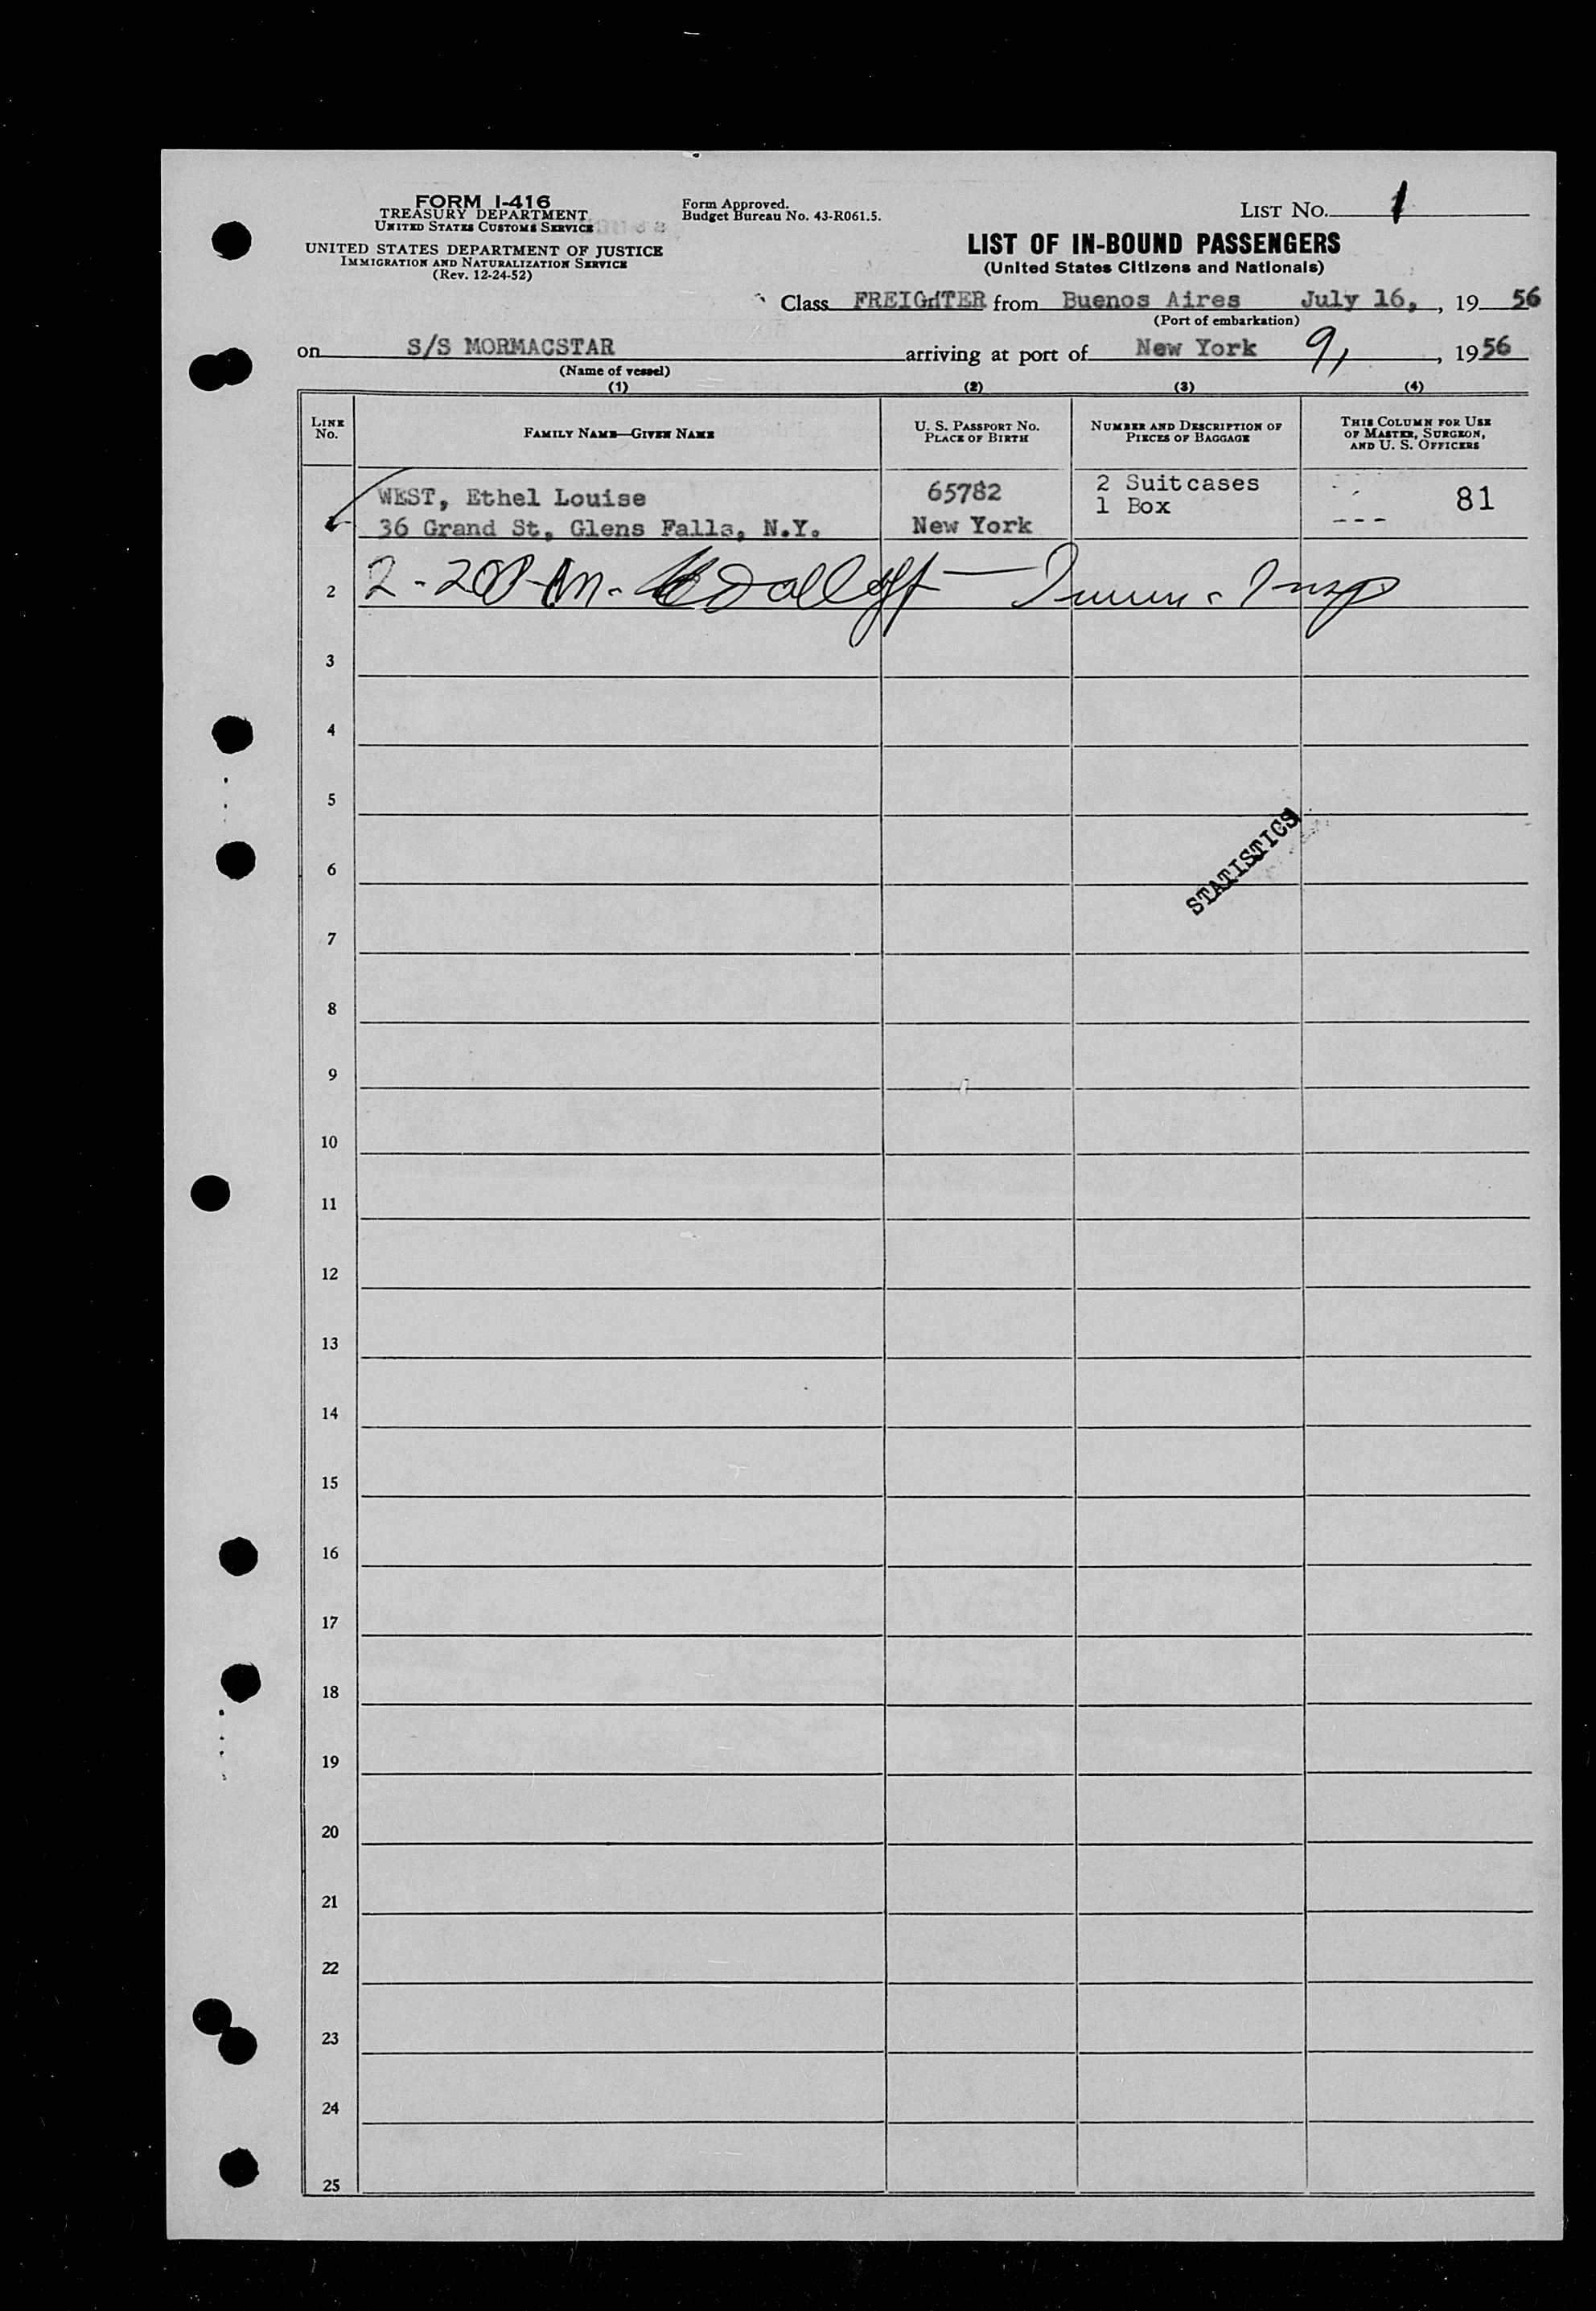 FORM I-416
TREASURY DEPARTMENT
UNITED STATES CUSTOMS SERVICE
UNITED STATES DEPARTMENT OF JUSTICE
IMMIGRATION AND NATURALIZATION SERVICE
(Rev. 12-24-52)
Form Approved.
Budget Bureau No. 43-R061.5.
LIST NO. 1
LIST OF IN-BOUND PASSENGERS
(United States Citizens and Nationals)
Class FREIGHTER from Buenos Aires July 16, , 19 56
(Port of embarkation)
on S/S MORMACSTAR arriving at port of New York 9, , 19 56
(Name of vessel)
(1) (2) (3) (4)
LINE No. FAMILY NAME—GIVEN NAME U. S. PASSPORT NO. PLACE OF BIRTH NUMBER AND DESCRIPTION OF PIECES OF BAGGAGE THIS COLUMN FOR USE OF MASTER, SURGEON, AND U. S. OFFICERS
WEST, Ethel Louise 65782 2 Suitcases
1 36 Grand St, Glens Falls, N.Y. New York 1 Box --- 81
2 2-20 P.M. Immn. Insp
3
4
5
STATISTICS
6
7
8
9
10
11
12
13
14
15
16
17
18
19
20
21
22
23
24
25